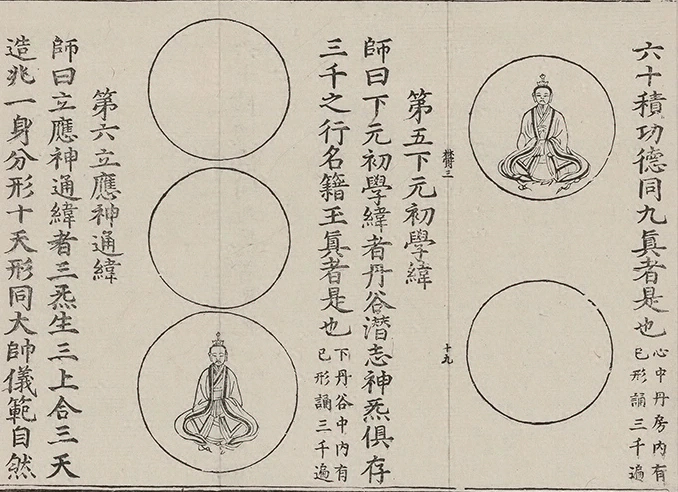 六十積功德同九真者是也
心中丹房內有
己形誦三千遍
十九
第五下元初學緯
師曰下元初學緯者丹谷潛志神炁俱存
三千之行名籍玉真者是也
下丹谷中內有
己形誦三千遍
第六立應神通緯
師曰立應神通緯者三炁生三上合三天
造兆一身分形十天形同大帥儀範自然